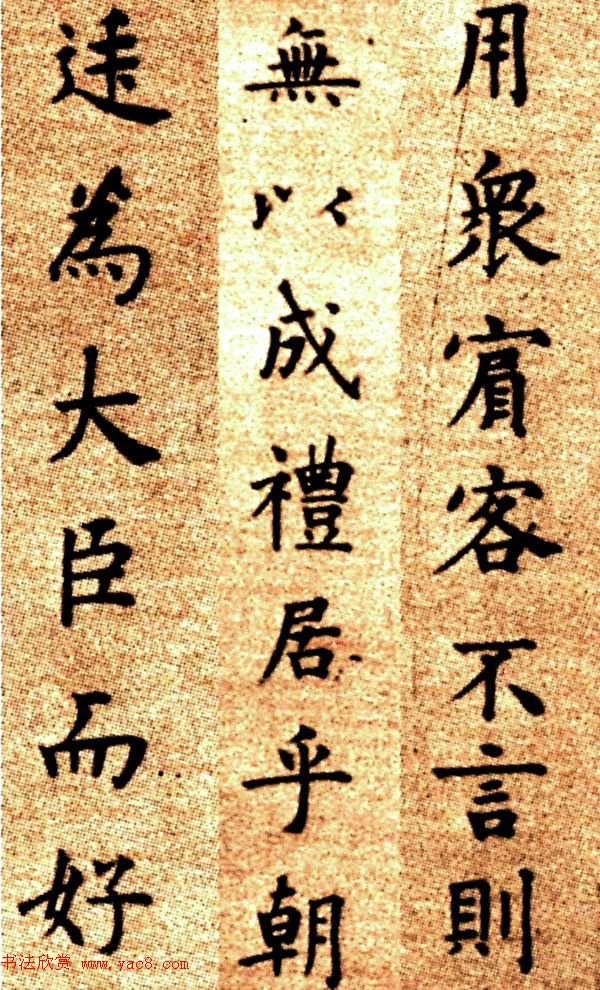 用衆賓客不言則
無以成禮居乎朝
廷為大臣而好
书法欣赏 www.yac8.com